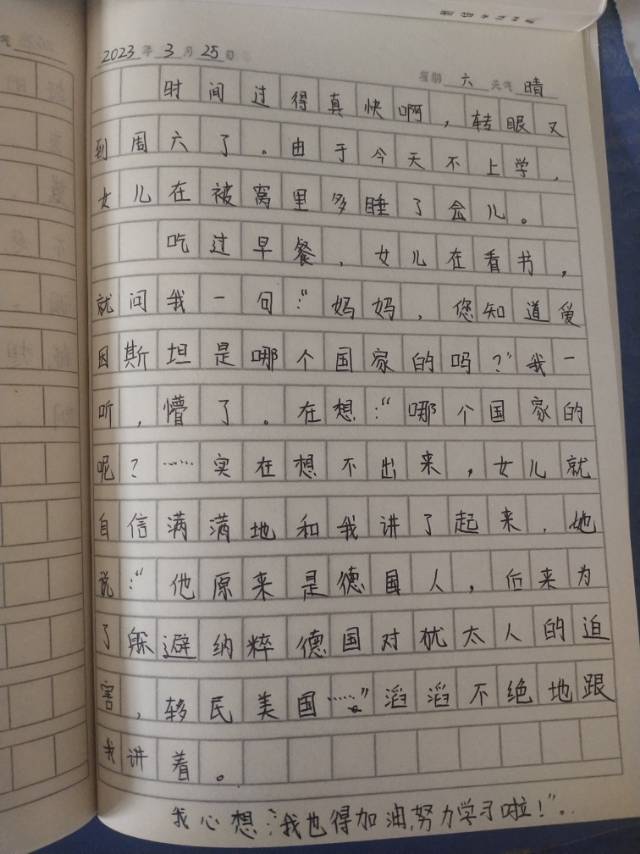 2023年3月25日 星期六 天气晴
时间过得真快啊,转眼又
到周六了。由于今天不上学,
女儿在被窝里多睡了会儿。
吃过早餐,女儿在看书,
就问我一句:“妈妈,您知道爱
因斯坦是哪个国家的吗?”我一
听,懵了。在想:“哪个国家的
呢?……实在想不出来,女儿就
自信满满地和我讲了起来,她
说:“他原来是德国人,后来为
了躲避纳粹德国对犹太人的迫
害,移民美国……”滔滔不绝地跟
我讲着。
我心想:“我也得加油,努力学习啦!”.